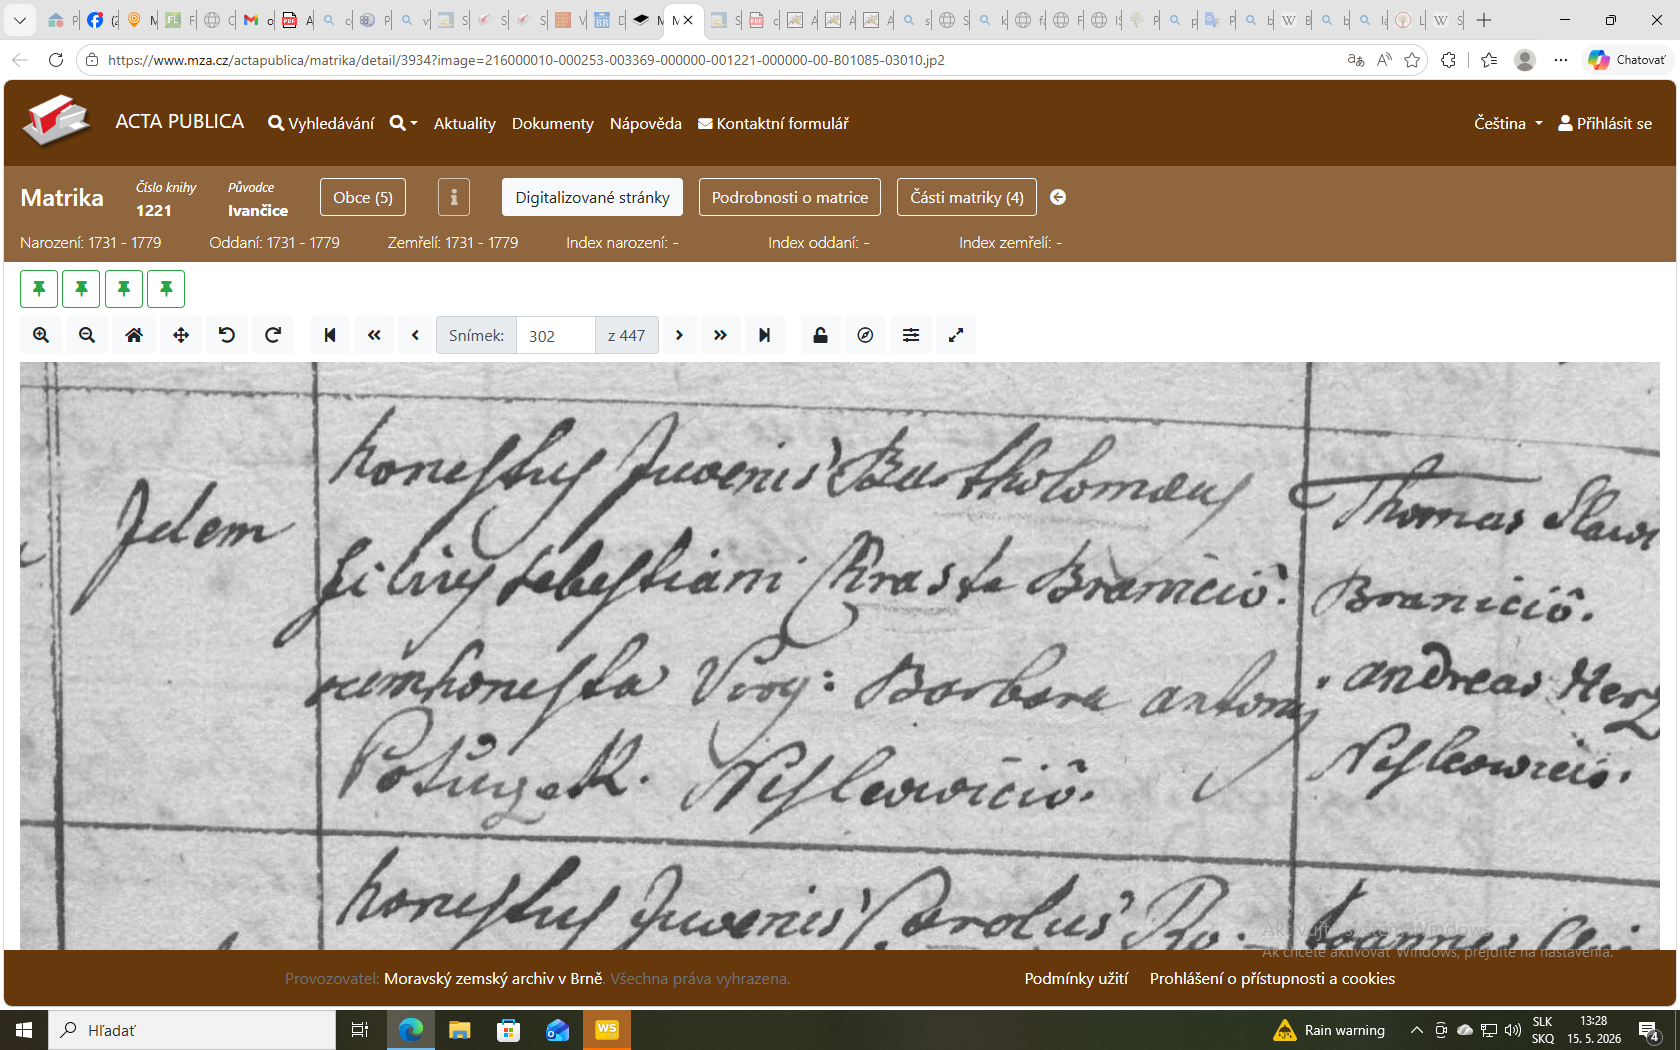 https://www.mza.cz/actapublica/matrika/detail/3934?image=216000010-000253-003369-000000-001221-000000-00-B01085-03010.jp2
Chatovať
ACTA PUBLICA
Vyhledávání
Aktuality
Dokumenty
Nápověda
Kontaktní formulář
Čeština
Přihlásit se
Matrika
Číslo knihy
1221
Původce
Ivančice
Obce (5)
Digitalizované stránky
Podrobnosti o matrice
Části matriky (4)
Narození: 1731 - 1779
Oddaní: 1731 - 1779
Zemřelí: 1731 - 1779
Index narození: -
Index oddaní: -
Index zemřelí: -
Snímek:
302
z 447
Idem
honestus Juvenis Bartholomæus
filius Sebastiani Krasta Braničiô.
cum honesta Virg: Barbara antony
Potuzek. Nesleowičiô.
Thomas Slaw
Braničiô.
andreas Herz
Nesleowiciô.
honestus Juvenis Carolus Ro-
Aktivujte systém Windows
Ak chcete aktivovať Windows, prejdite na nastavenia.
Provozovatel: Moravský zemský archiv v Brně. Všechna práva vyhrazena.
Podmínky užití
Prohlášení o přístupnosti a cookies
Hľadať
WS
Rain warning
SLK
SKQ
13:28
15. 5. 2026
4